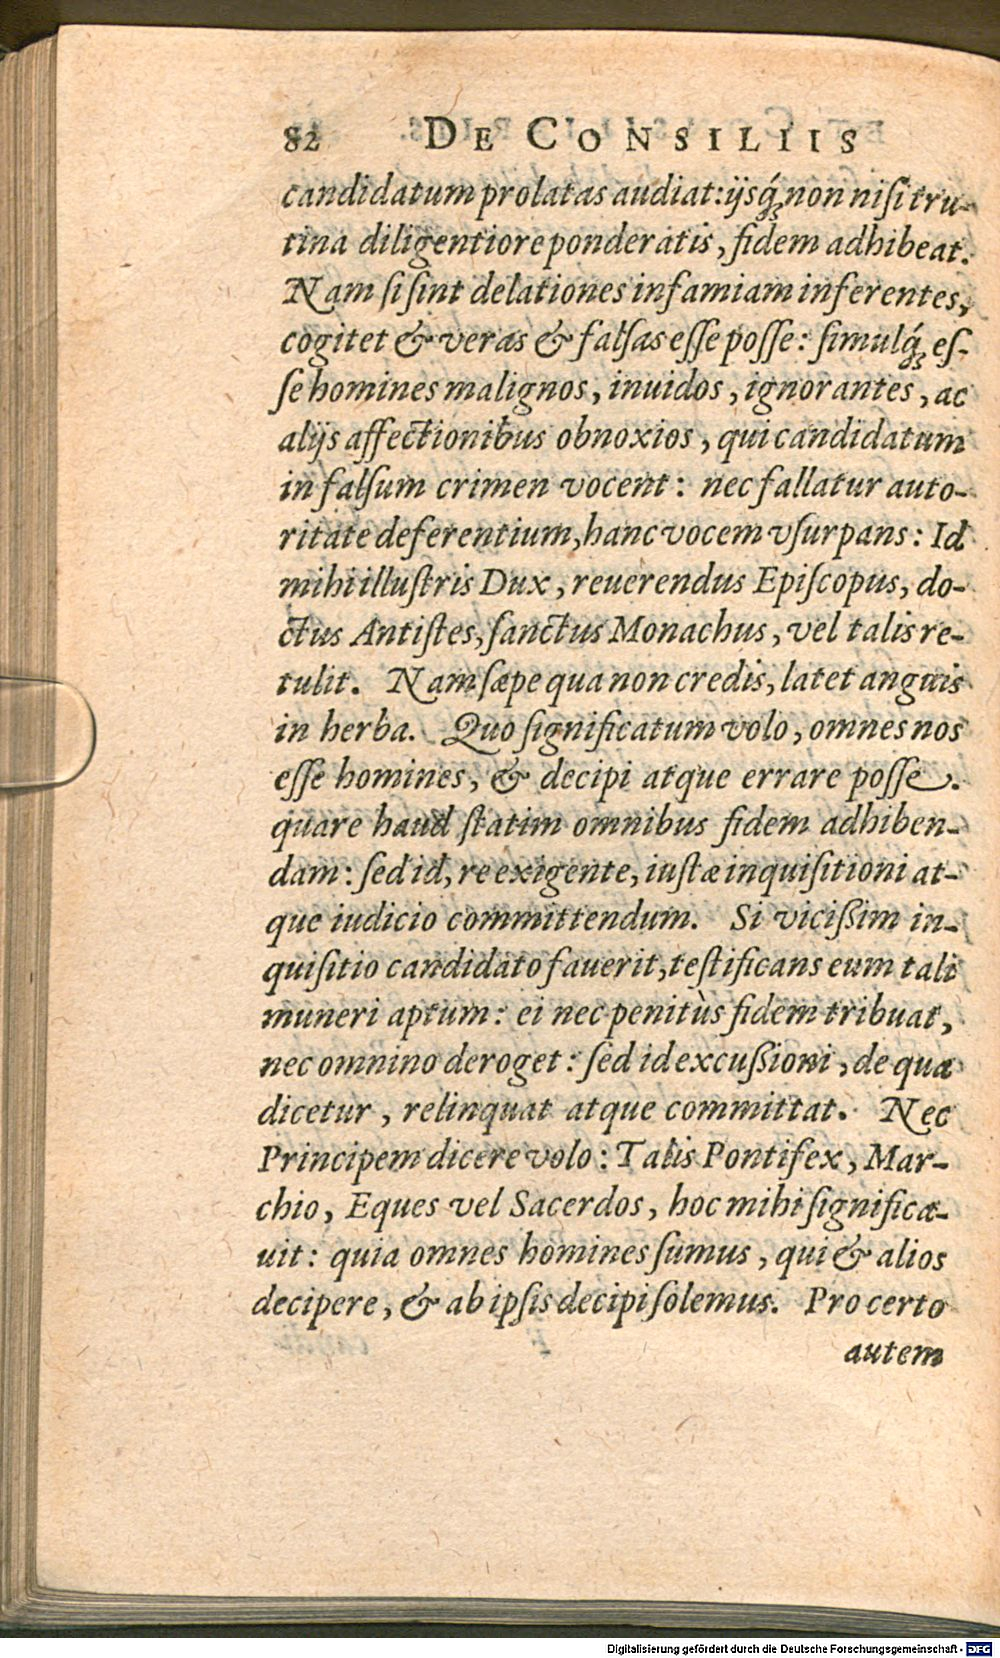 82 DE CONSILIIS
candidatum prolatas audiat: ijsq́ꝫ non niſi tru-
tina diligentiore ponderatis, fidem adhibeat.
Nam ſi ſint delationes infamiam inferentes,
cogitet & veras & falſas eſſe poſſe: ſimulq́ꝫ eſ-
ſe homines malignos, inuidos, ignorantes, ac
alijs affectionibus obnoxios, qui candidatum
in falſum crimen vocent: nec fallatur auto-
ritate deferentium, hanc vocem vſurpans: Id
mihi illuſtris Dux, reuerendus Epiſcopus, do-
ctus Antiſtes, ſanctus Monachus, vel talis re-
tulit. Nam ſæpe qua non credis, latet anguis
in herba. Quo ſignificatum volo, omnes nos
eſſe homines, & decipi atque errare poſſe.
quare haud ſtatim omnibus fidem adhiben-
dam: ſed id, re exigente, iuſtæ inquiſitioni at-
que iudicio committendum. Si viciſſim in-
quiſitio candidato fauerit, teſtificans eum tali
muneri aptum: ei nec penitùs fidem tribuat,
nec omnino deroget: ſed id excuſſioni, de qua
dicetur, relinquat atque committat. Nec
Principem dicere volo: Talis Pontifex, Mar-
chio, Eques vel Sacerdos, hoc mihi ſignifica-
uit: quia omnes homines ſumus, qui & alios
decipere, & ab ipſis decipi ſolemus. Pro certo
autem
Digitalisierung gefördert durch die Deutsche Forschungsgemeinschaft - DFG